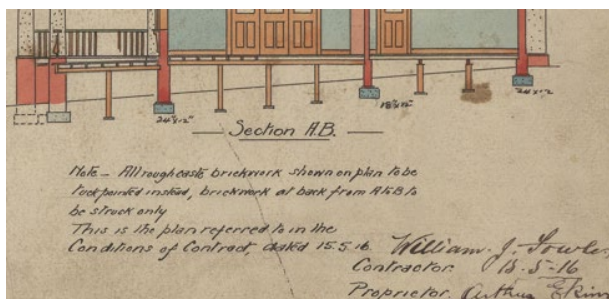 24"x12"
18"x12"
24"x12"
Section A.B.
Note - All roughcaste brickwork shown on plan to be
tuckpointed instead, brickwork at back from A to B to
be struck only
This is the plan referred to in the
Conditions of Contract, dated 15.5.16
William J.
Contractor. 15-5-16
Proprietor. Arthur